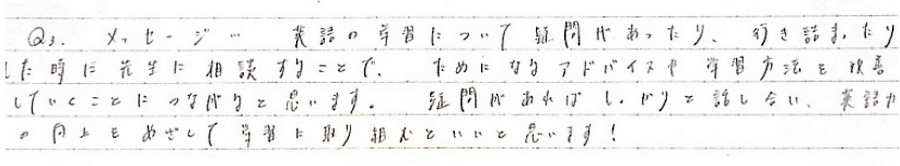 Q3. メッセージ… 英語の学習について疑問があったり、行き詰まったり
した時に先生に相談することで、ためになるアドバイスや学習方法を改善
していくことにつながると思います。疑問があればしっかりと話し合い、英語力
の向上をめざして学習に取り組むといいと思います!